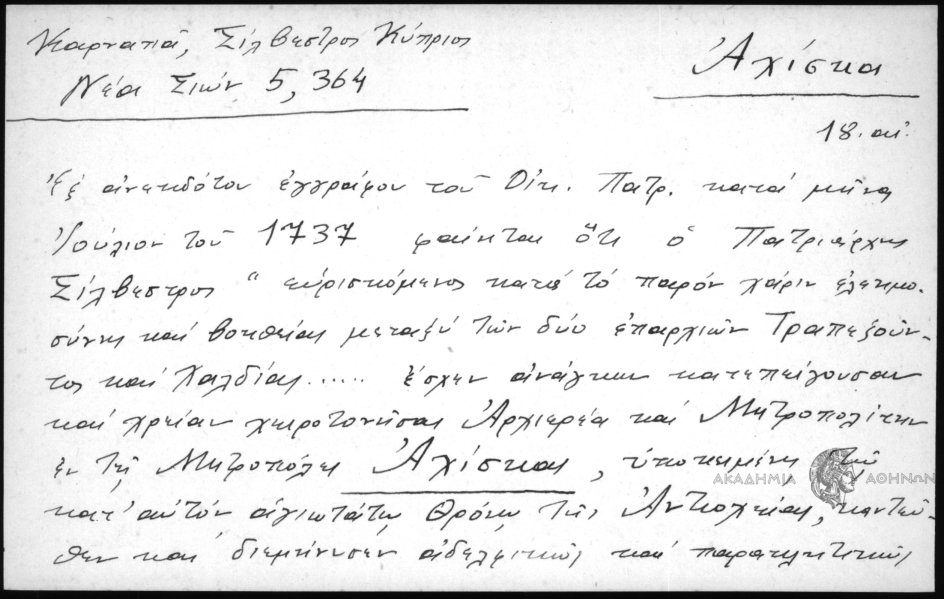 Καρναπᾶ, Σίλβεστρος Κύπριος
Νέα Σιών 5, 364
Ἀχίσκα
18. αἰ.
Ἐξ ἀνεκδότου ἐγγράφου τοῦ Οἰκ. Πατρ. κατά μῆνα
Ἰούλιον τοῦ 1737 φαίνεται ὅτι ὁ Πατριάρχης
Σίλβεστρος "εὑρισκόμενος κατά τό παρόν χάριν ἐλεημο-
σύνης καί βοηθείας μεταξύ τῶν δύο ἐπαρχιῶν Τραπεζοῦν-
τος καί Χαλδίας..... ἔσχεν ἀνάγκην κατεπείγουσαν
καί χρείαν χειροτονῆσαι Ἀρχιερέα καί Μητροπολίτην
ἐν τῇ Μητροπόλει Ἀχίσκας, ὑποκειμένῃ τῷ
κατ' αὐτόν ἁγιωτάτῳ Θρόνῳ τῆς Ἀντιοχείας, κἀντεῦ-
θεν καί διεμήνυσεν ἀδελφικῶς καί παρακλητικῶς
ΑΚΑΔΗΜΙΑ ΑΘΗΝΩΝ